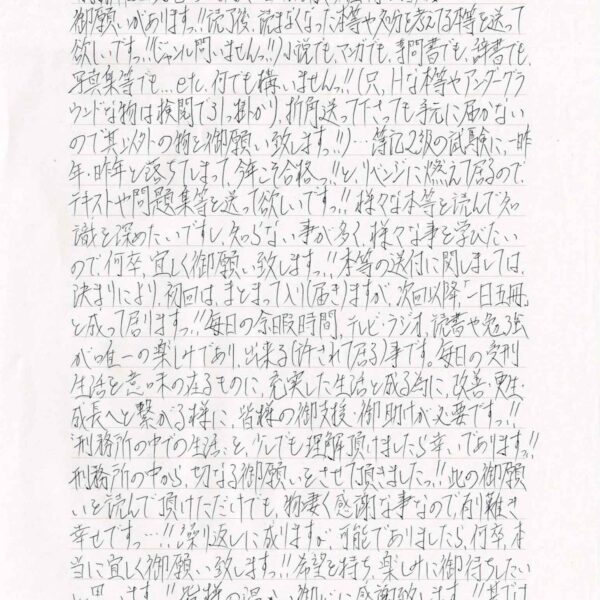 御願いがありますっ!!読了後、読まなくなった本等や処分を考えてる本等を送って
欲しいですっ!!(ジャンル問いませんっ!!)小説でも、マンガでも、専門書でも、辞書でも、
写真集等でも…etc、何でも構いませんっ!!(只、Hな本等やアンダーグラ
ウンドな物は検閲で引っ掛かり、折角送って下さっても手元に届かない
ので其以外の物を御願い致しますっ!!)…簿記2級の試験に、一昨
年、昨年と落ちてしまって、今年こそ合格っ!!と、リベンジに燃えて居るので、
テキストや問題集等を送って欲しいですっ!!様々な本等を読んで知
識を深めたいですし、知らない事が多く、様々な事を学びたい
ので、何卒、宜しく御願い致しますっ!!本等の送付に関しましては、
決まりにより、初回は、まとまって入り(届き)ますが、次回以降、「一日五冊」
と成って居りますっ!!毎日の余暇時間、テレビ・ラジオ、読書や勉強
が唯一の楽しみであり、出来る(許されて居る)事です。毎日の受刑
生活を意味の在るものに、充実した生活と成る為に、改善・更生・
成長へと繋がる様に、皆様の御支援・御助けが必要ですっ!!
刑務所の中での生活を、少しでも理解頂けましたら幸いでありますっ!!
刑務所の中から、切なる御願いをさせて頂きましたっ!!此の御願
いを読んで頂けただけでも、物凄く感謝な事なので、有り難き
幸せですっ…!!繰り返しに成りますが、可能でありましたら、何卒、本
当に宜しく御願い致しますっ!!希望を持ち、楽しみに御待ちしたい
と思いますっ!!皆様の温かい御心に感謝致しますっ!!